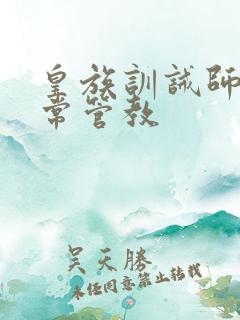 皇族訓誡師
常管教
吴天勝
未经同意禁止转载